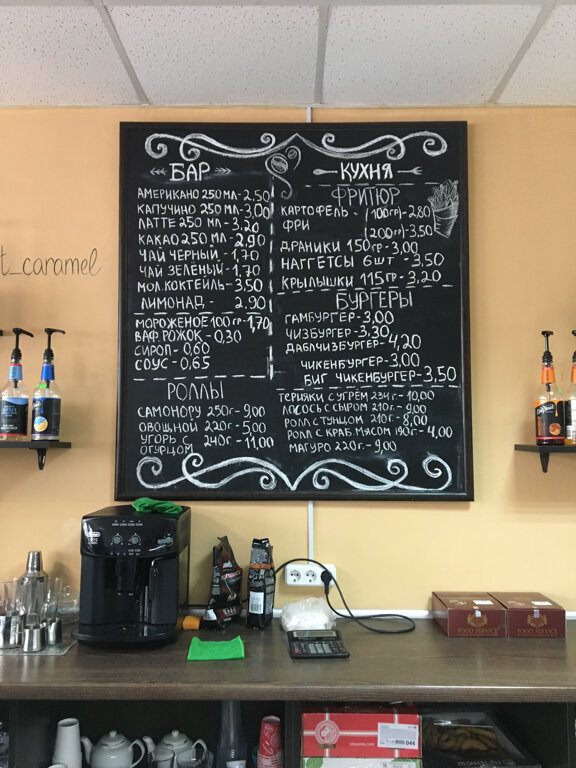 БАР
АМЕРИКАНО 250 МЛ - 2,50
КАПУЧИНО 250 МЛ - 3,00
ЛАТТЕ 250 МЛ - 3,20
КАКАО 250 МЛ - 2,90
ЧАЙ ЧЕРНЫЙ - 1,70
ЧАЙ ЗЕЛЕНЫЙ - 1,70
МОЛ. КОКТЕЙЛЬ - 3,50
ЛИМОНАД - 2.90
МОРОЖЕНОЕ 100 ГР - 1,70
ВАФ. РОЖОК - 0,30
СИРОП - 0,60
СОУС - 0,65
КУХНЯ
ФРИТЮР
КАРТОФЕЛЬ - (100 ГР) - 2,80
ФРИ (200 ГР) - 3,50
ДРАНИКИ 150 ГР - 3,00
НАГГЕТСЫ 6 ШТ - 3,50
КРЫЛЫШКИ 115 ГР - 3,20
БУРГЕРЫ
ГАМБУРГЕР - 3,00
ЧИЗБУРГЕР - 3,30
ДАБЛЧИЗБУРГЕР - 4,20
ЧИКЕНБУРГЕР - 3.00
БИГ ЧИКЕНБУРГЕР - 3,50
РОЛЛЫ
САМОНОРУ 250 Г - 9,00
ОВОЩНОЙ 220 Г - 5,00
УГОРЬ С 240 Г - 11,00
ОГУРЦОМ
ТЕРИЯКИ С УГРЁМ 234 Г - 10,00
ЛОСОСЬ С СЫРОМ 210 Г - 9,00
РОЛЛ С ТУНЦОМ 210 Г - 8,00
РОЛЛ С КРАБ. МЯСОМ 190 Г - 4,00
МАГУРО 220 Г - 9,00
t_caramel
FOOD SERVICE
FOOD SERVICE
044